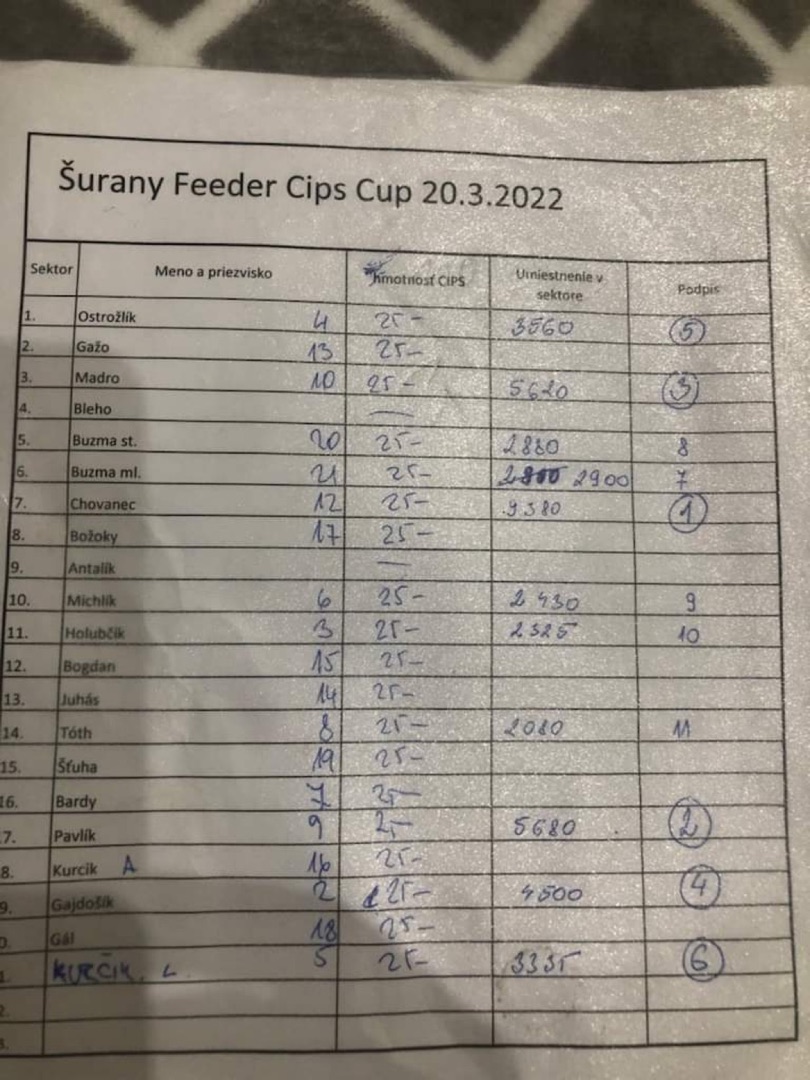 Šurany Feeder Cips Cup 20.3.2022
Sektor Meno a priezvisko hmotnosť CIPS Umiestnenie v sektore Podpis
1. Ostrožlík 4 25- 3560 5
2. Gažo 13 25-
3. Madro 10 25- 5620 3
4. Bleho —
5. Buzma st. 20 25- 2880 8
6. Buzma ml. 21 25- 2900 7
7. Chovanec 12 25- 9380 1
8. Božoky 17 25-
9. Antalík —
10. Michlík 6 25- 2430 9
11. Holubčík 3 25- 2325 10
12. Bogdan 15 25-
13. Juhás 14 25-
14. Tóth 8 25- 2080 11
15. Šťuha 19 25-
16. Bardy 7 25-
7. Pavlík 9 25- 5680 2
8. Kurcik A 16 25-
9. Gajdošík 2 25- 4500 4
0. Gál 18 25-
1. KURČIK. L 5 25- 3335 6
2.
3.